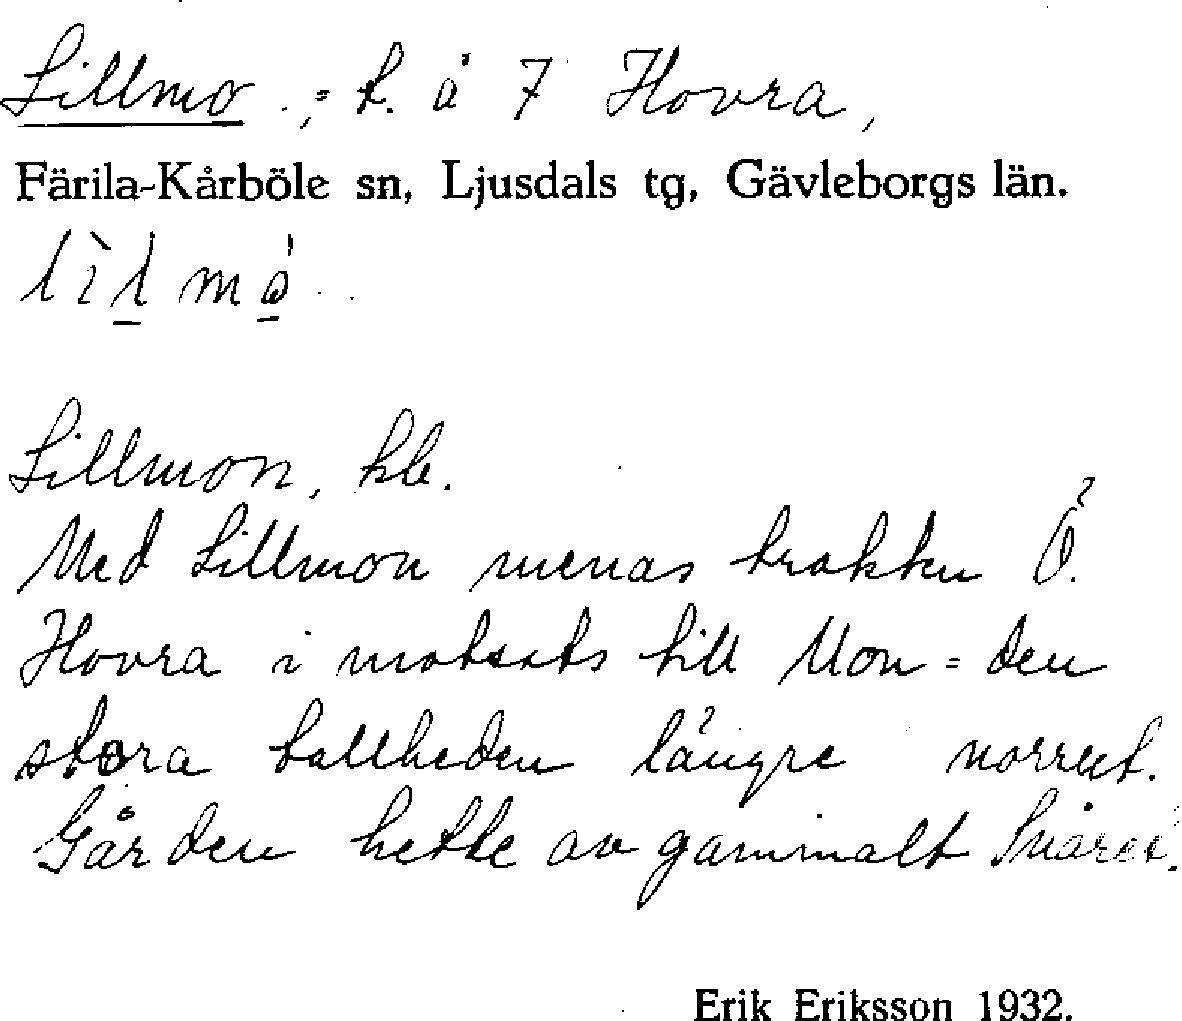 Lillmo, = t. å 7 Hovra,
Färila-Kårböle sn, Ljusdals tg, Gävleborgs län.
Lillmon, kb.
Med Lillmon menas trakten Ö.
Hovra i motsats till Mon = den
stora tallheden längre norrut.
Gården hette av gammalt Snåret.
Erik Eriksson 1932.